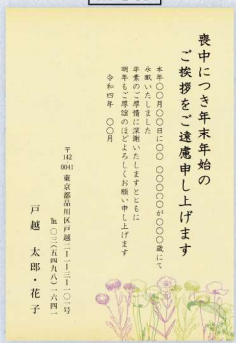 喪中につき年末年始の
ご挨拶をご遠慮申し上げます
本年〇〇月〇〇日に〇〇 〇〇〇〇〇が〇〇〇歳にて
永眠いたしました
平素のご厚情に深謝いたしますとともに
明年もご厚誼のほどよろしくお願い申し上げます
令和四年 〇〇月
〒142
0041 東京都品川区戸越二ー一ー三ー一〇一号
℡〇三(五四九八)一六四一
戸越 太郎・花子